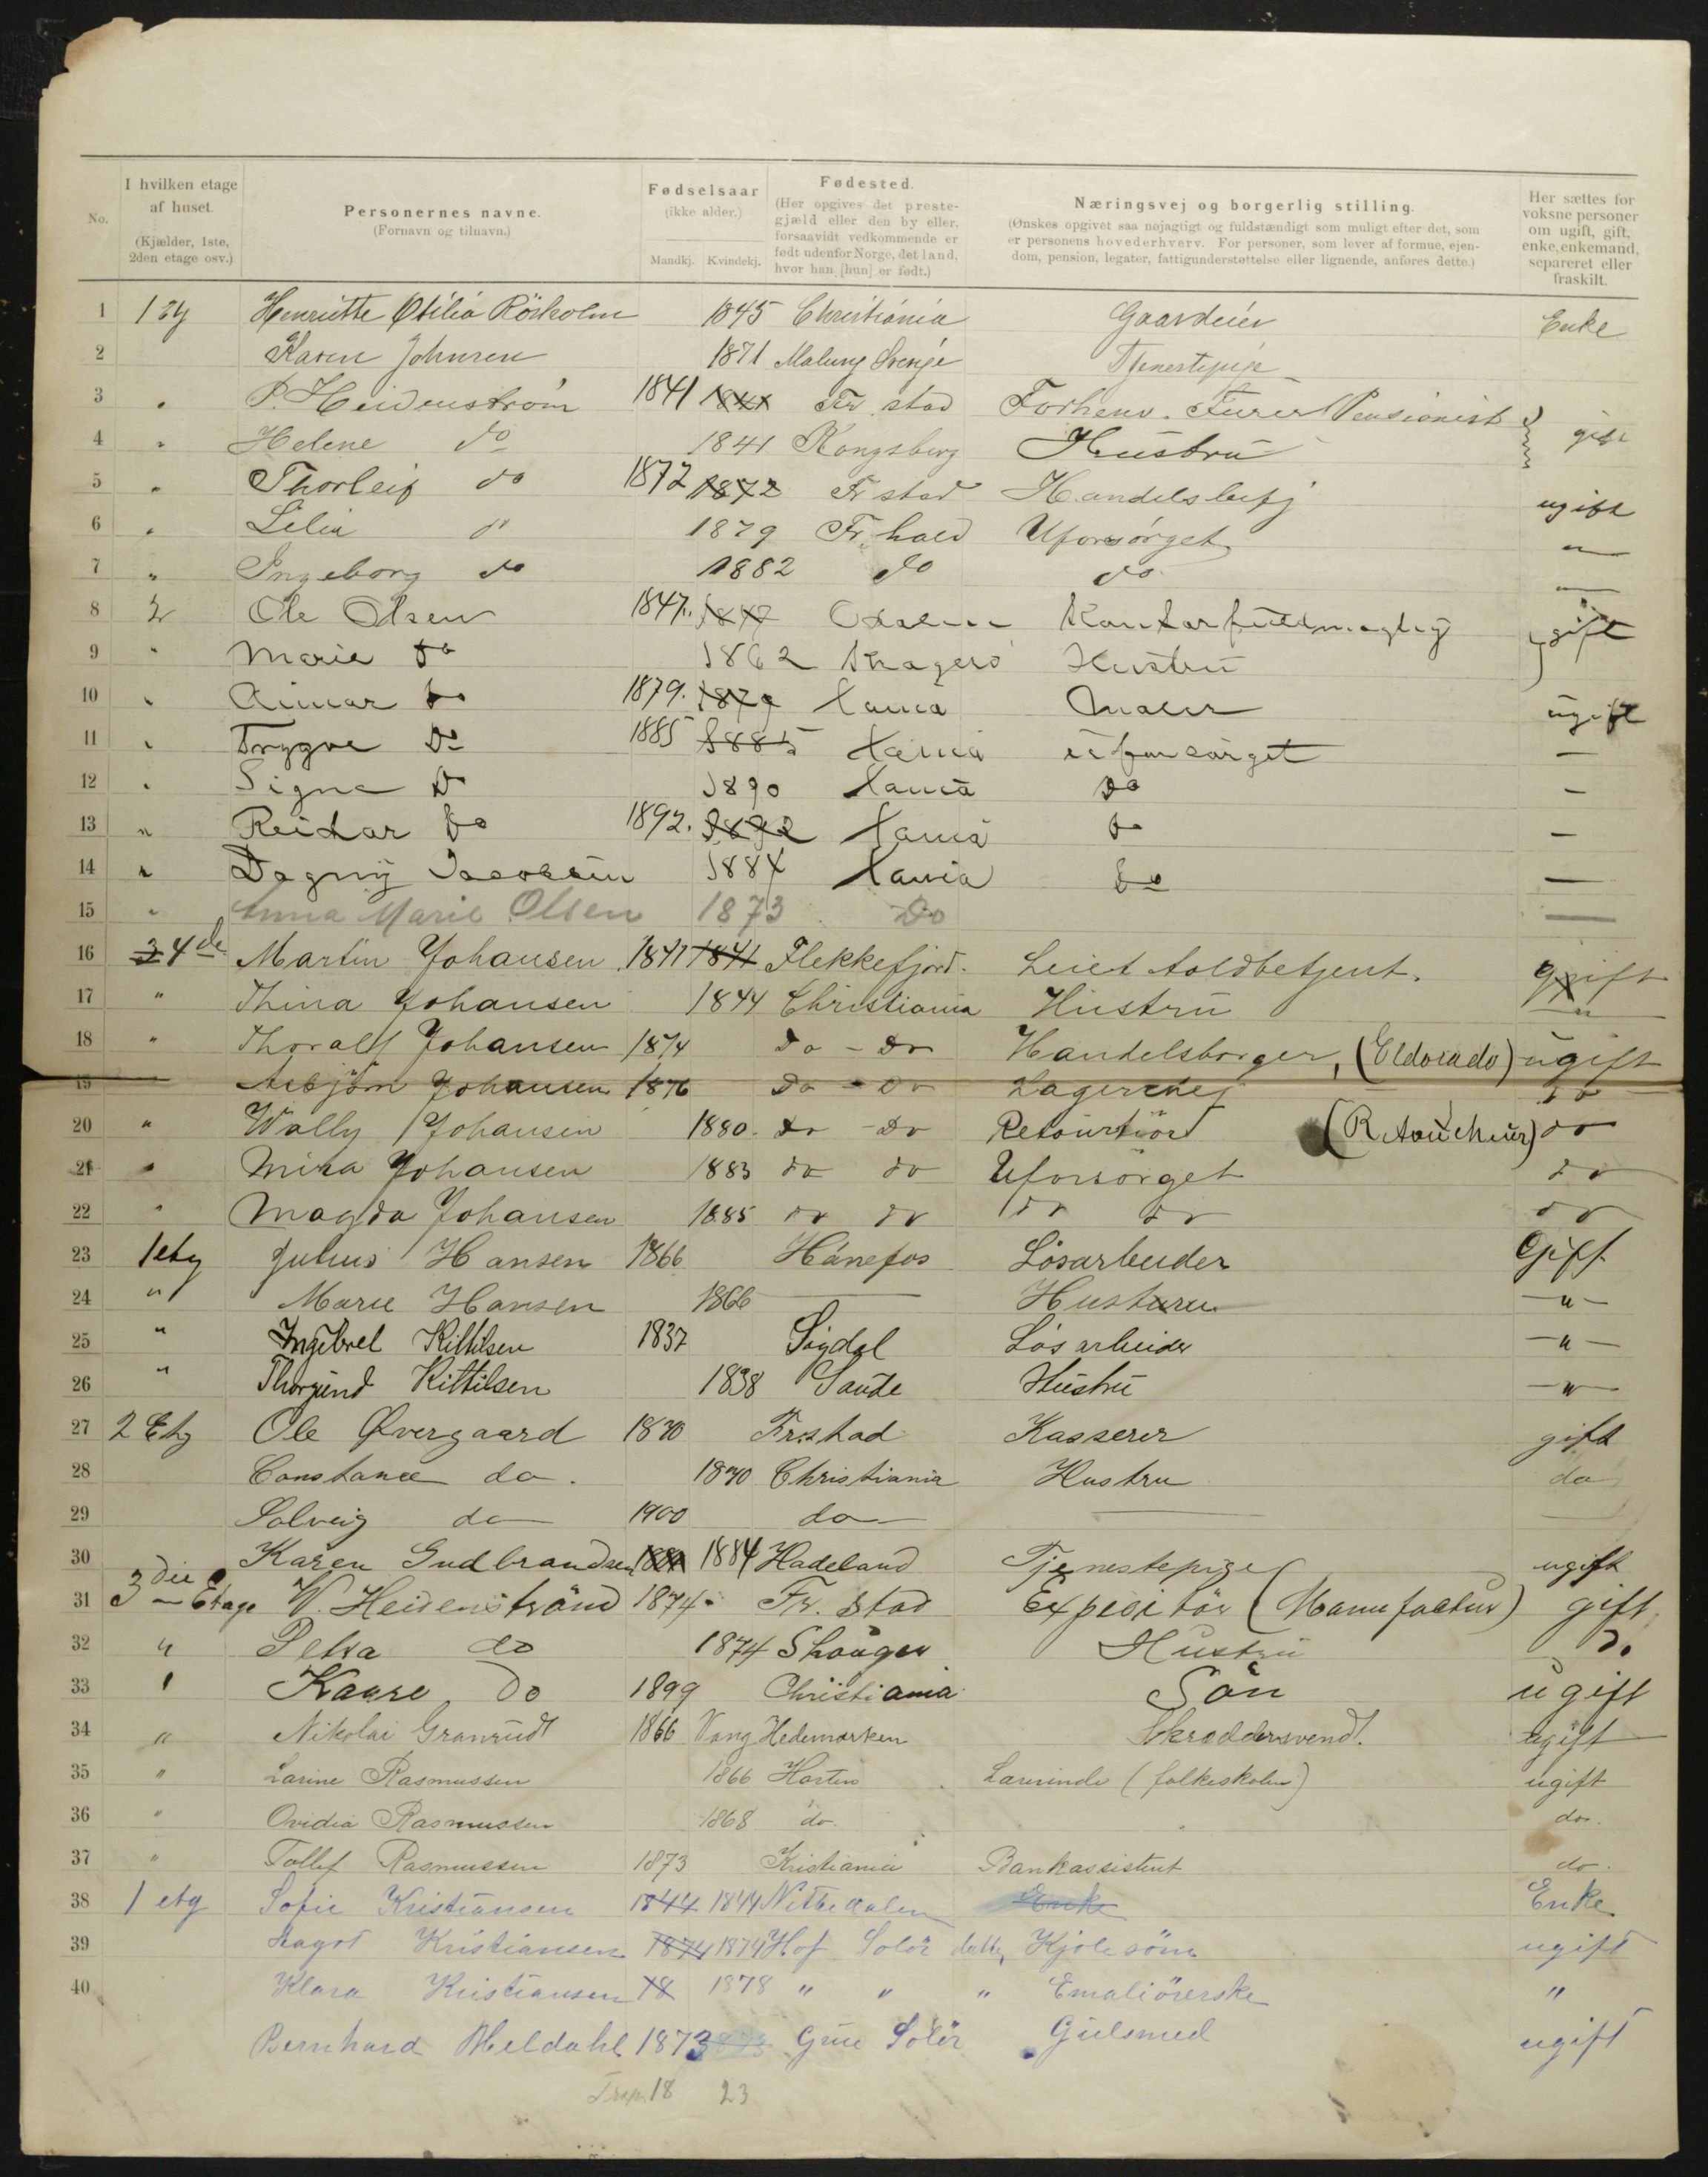 No.
I hvilken etage af huset.
(Kjælder, 1ste, 2den etage osv.)
Personernes navne.
(Fornavn og tilnavn.)
Fødselsaar
(ikke alder.)
Mandkj. Kvindekj.
Fødested.
(Her opgives det prestegjæld eller den by eller, forsaavidt vedkommende er født udenfor Norge, det land, hvor han [hun] er født.)
Næringsvej og borgerlig stilling.
(Ønskes opgivet saa nøjagtigt og fuldstændigt som muligt efter det, som er personens hovederhverv. For personer, som lever af formue, ejendom, pension, legater, fattigunderstøttelse eller lignende, anføres dette.)
Her sættes for voksne personer om ugift, gift, enke, enkemand, separeret eller fraskilt.
1 Henriette Otilia 1845 Christiania Gaardeier Enke
2 Karen Johnsen 1871 Malung Sverige Tjenestepige
3 " P. Heidenstrøm 1841 1841 Fr. stad Forhenv. Furer Pensionist gift
4 " Helene do 1841 Kongsberg Hustru
5 " Thorleif do 1872 1872 Fr stad Handelsbetj ugift
6 " Lilia do 1879 Fr. hald Uforsørget "
7 " Ingeborg do 1882 do do —
8 2 Ole Olsen 1847. 1847 Kontorfuldmægtig gift
9 " Marie Do 1862 Kragerø Hustru
10 " Do 1879. 1879 Xania Maler ugift
11 " Trygve Do 1885 1885 Xania uforsørget —
12 " Signe Do 1890 Xania Do —
13 " Reidar Do 1892. 1892 Xania Do —
14 " Dagny Jacobsen 1884 Xania Do —
15 " Anna Marie Olsen 1873 Do —
16 3 4de Martin Johansen 1841 1841 Flekkefjord. Leiet toldbetjent. gift
17 " Thina Johansen 1844 Christiania Hustru "
18 " Thoralf Johansen 1874 Do - Do Handelsborger, (Eldorado) ugift
19 Asbjørn Johansen 1876 Do - Do do
20 " Wally Johansen 1880. Do - Do (Retoucheur) do
21 " Mina Johansen 1883 do do Uforsørget do
22 " Magda Johansen 1885 do do do do do
23 1 etg Julius Hansen 1866 Hønefos Løsarbeider Gift
24 " Marie Hansen 1866 — Hustru — " —
25 " Ingebrel Kittilsen 1837 Sigdal Løsarbeider — " —
26 " Kittilsen 1838 Saude Hustru — " —
27 2 Etg Ole Øvergaard 1870 Fr.stad Kasserer gift
28 Constance do. 1870 Christiania Hustru do
29 Solveig do 1900 do —
30 Karen Gudbrandsen 1884 Hadeland Tjenestepige ugift
31 3die Etage V. Heidenstrøm 1874. Fr. stad Expeditør (Manufactur) gift
32 " Petra do 1874 Hustru Do
33 " Kaare do 1899 Christiania Søn ugift
34 " Nikolai Granrudt 1866 Vang Hedemarken Skræddersvend. ugift
35 " Larine Rasmussen 1866 Horten Lærerinde (folkeskolen) ugift
36 " Ovidia Rasmussen 1868 do. do.
37 " Tollef Rasmussen 1873 Kristiania Bankassistent do.
38 1 etg Sofie Kristiansen 1844 1844 Nittedalen Enke Enke
39 Kristiansen 1874 1874 Hof Solør datter Kjolesøm ugift
40 Klara Kristiansen 18 1878 " " " Emaliørerske "
Bernhard Meldahl 1873 Grue Solør Gulsmed ugift
18 23